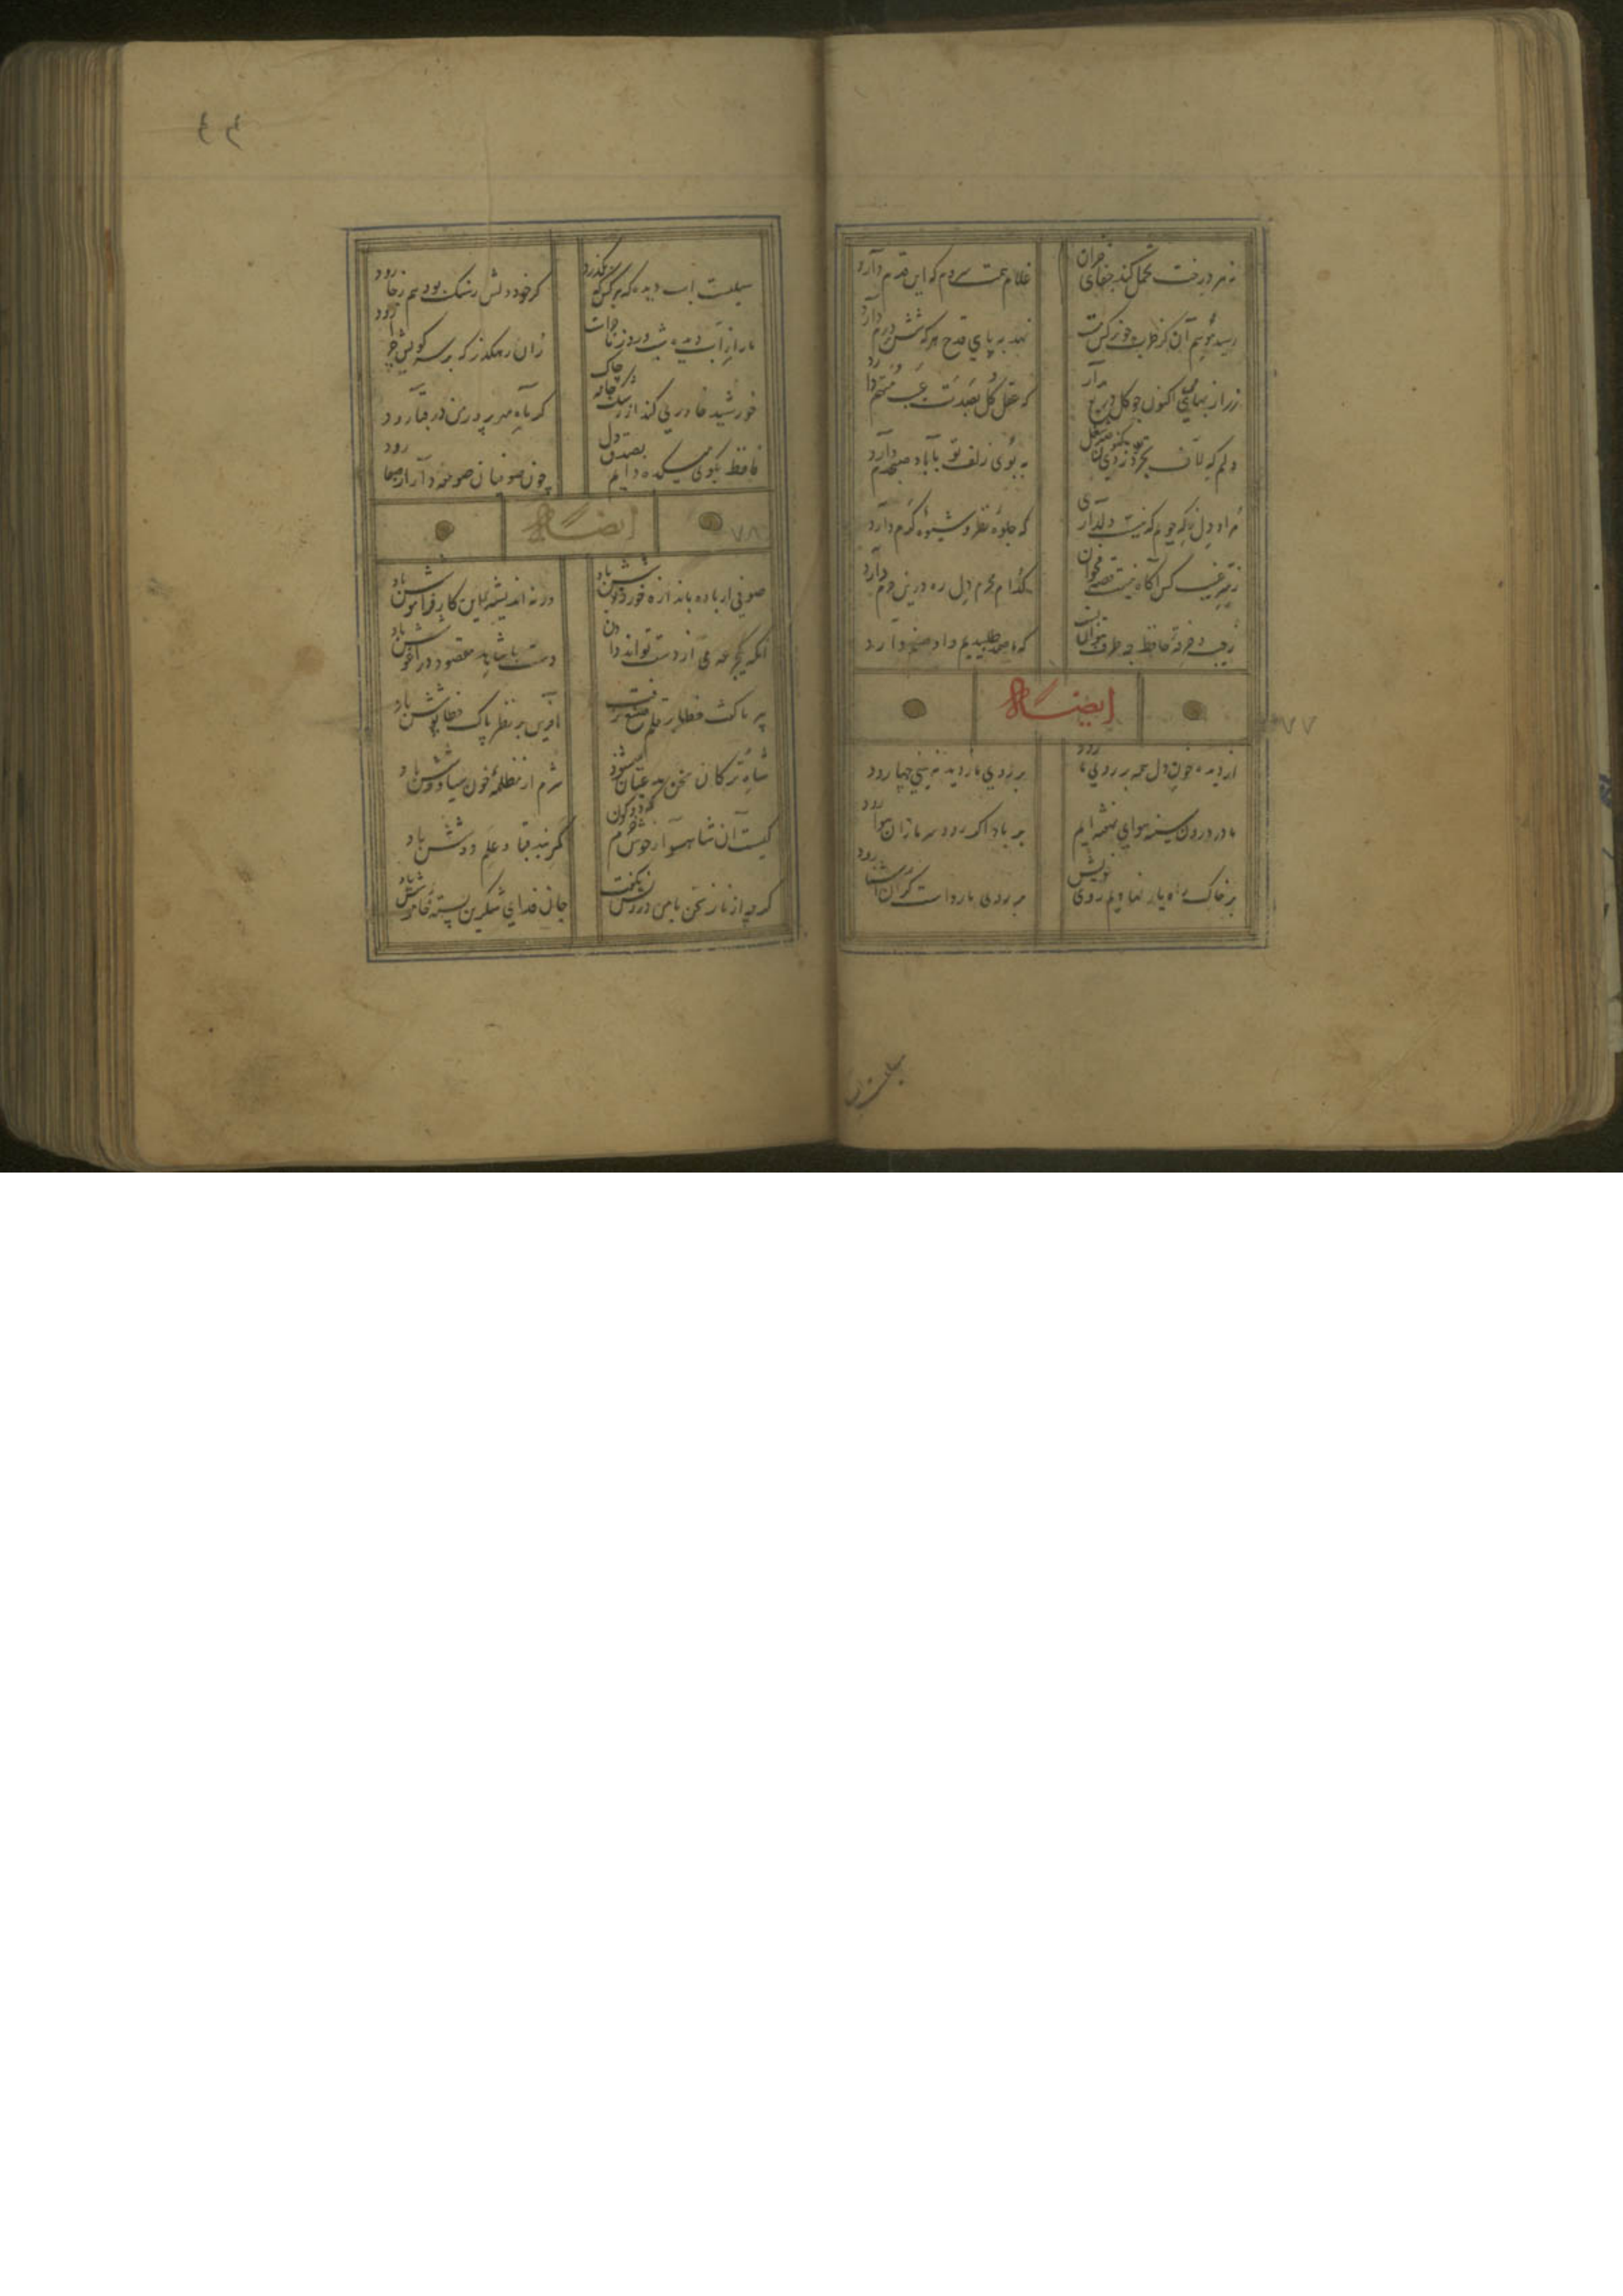 نه هر درخت تحمل کند جفای خزان
غلام همت سروم که این قدم دارد
رسید موسم آن کز طرب چو نرگس مست
نهد به پای قدح هر که شش درم دارد
زر از بهای می اکنون چو گل دریغ مدار
که عقل کل بصدت عیب متهم دارد
دلم که لاف تجرد زدی کنون صد شغل
به بوی زلف تو با باد صبحدم دارد
مراد دل ز که جویم که نیست دلداری
که جلوه نظر و شیوه کرم دارد
ز سر غیب کس آگاه نیست قصه مخوان
کدام محرم دل ره درین حرم دارد
ز جیب خرقه حافظ چه طرف بتوان بست
که ما صمد طلبیدیم و او صنم دارد
ایضاله
۷۷
از دیده خون دل همه بر روی ما رود
بر روی ما ز دیده نه بینی چها رود
ما در درون سینه هوای نهفته ایم
بر باد اگر رود سر ما زان هوا رود
بر خاک راه یار نهادیم روی خویش
بر روی ما رواست گر آشنا رود
سیلست آب دیده که بر هر کس بگذرد
گر خود دلش ز سنگ بود هم ز جا رود
ما را ز آب دیده شب و روز ماجراست
زان رهگذر که بر سر کویش چرا رود
خورشید خاوری کند از رشک جامه چاک
گر ماه مهر پرور من در قبا رود
حافظ بکوی میکده دایم بصدق دل
چون صوفیان صومعه دار از صفا رود
ایضاله
۷۸
صوفی ار باده باندازه خورد نوشش باد
ورنه اندیشه این کار فراموشش باد
آنکه یکجرعه می از دست تواند دادن
دست با شاهد مقصود در آغوشش باد
پیر ما گفت خطا بر قلم صنع نرفت
آفرین بر نظر پاک خطا پوشش باد
شاه ترکان سخن مدعیان میشنود
شرم از مظلمه خون سیاووشش باد
کیست آن شاهسوار خوش خرم که دو کون
گر نبد قبا و علم دوشش باد
گرچه از ناز سخن با من درویش نگفت
جان فدای شکرین پسته خاموشش باد
سیلست